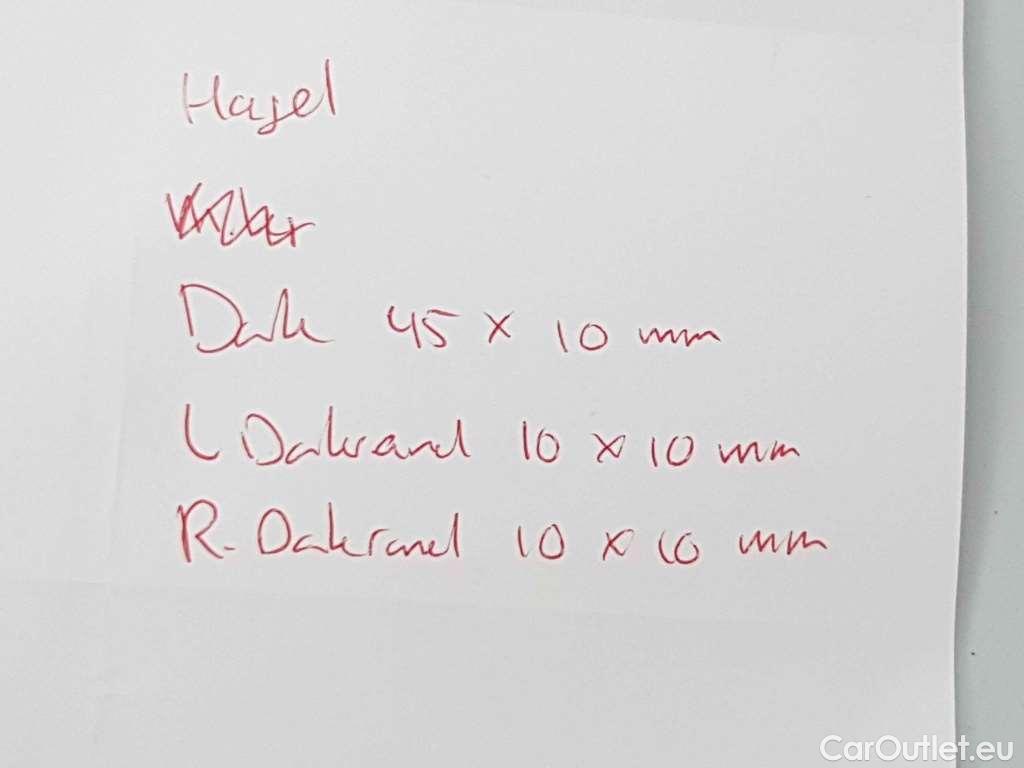 Hagel
Dak 45 x 10 mm
L Dakrand 10 x 10 mm
R. Dakrand 10 x 10 mm
CarOutlet.eu